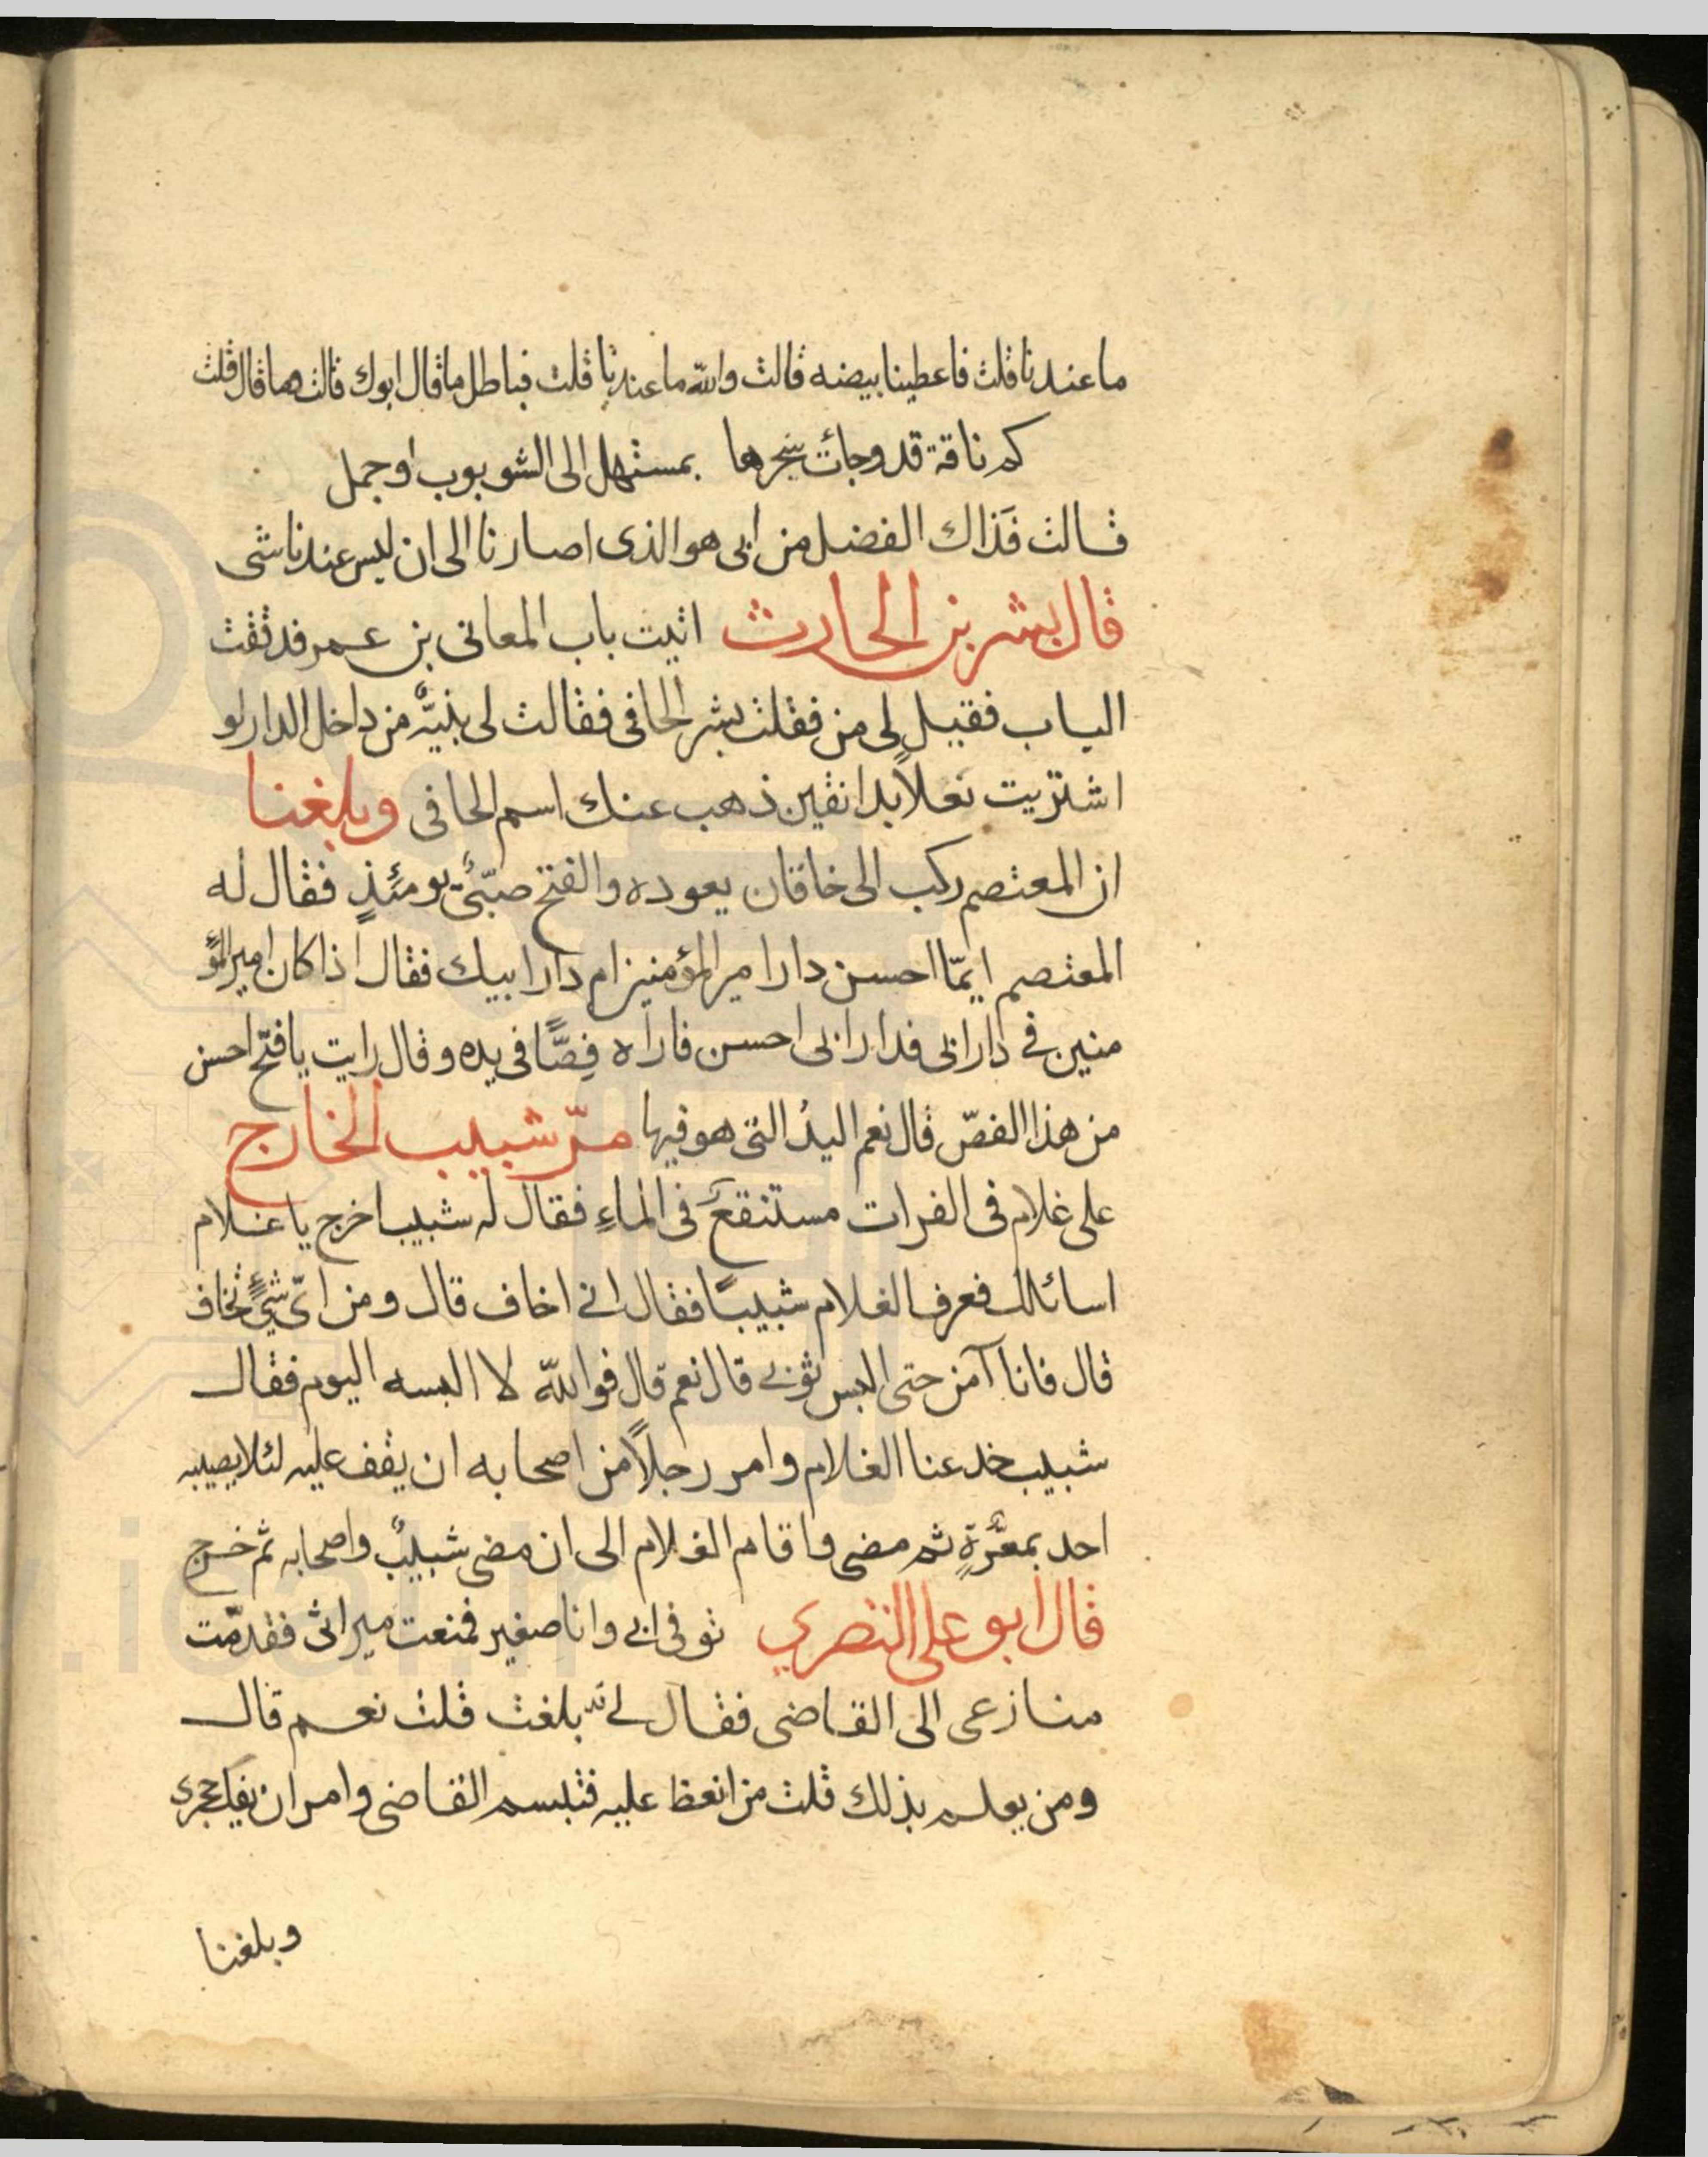 ما عندنا قلت فاعطينا بيضه قالت والله ما عندنا قلت فباطل ما قال ابوك قالت وما قال قلت
كم ناقة قد وجأت نحرها بمستهل الى الشوبوب او جمل
قالت فَذاك الفضل من ابى هو الذى اصارنا الى ان ليس عندنا شى
قال بشر بن الحارث اتيت باب المعافى بن عمر فدققت
الباب فقيل لى من فقلت بشر الحافى فقالت لى بنيَّه من داخل الدار لو
اشتريت نعلاً بدانقين ذهب عنك اسم الحافى وبلغنا
ان المعتصم ركب الى خاقان يعوده والفتح صبىٌّ يومئذٍ فقال له
المعتصم ايمّا احسن دار امير المؤمنين ام دار ابيك فقال اذا كان امير المؤ
منين فى دار ابى فدار ابى احسن فاراه فِصًّا فى يده وقال رايت يا فتح احسن
من هذا الفصّ قال نعم اليدُ التى هو فيها مرّ شبيب الخارج
على غلام فى الفرات مستنقع فى الماءِ فقال له شبيب اخرج يا غلام
اسائلك فعرف الغلام شبيبًا فقال انى اخاف قال ومن اىّ شئٍ تخاف
قال فانا آمن حتى البس ثوبى قال نعم قال فوالله لا البسه اليوم فقال
شبيب خدعنا الغلام وامر رجلاً من اصحابه ان يقف عليه لئلا يصيبه
احد بمعرَّةٍ ثم مضى واقام الغلام الى ان مضى شبيبٌ واصحابه ثم خرج
قال ابو على النضري توفى ابى وانا صغير فمنعت ميراثى فقدّمت
منازعى الى القاضى فقال لى قد بلغت قلت نعم قال
ومن يعلم بذلك قلت من انعظ عليه فتبسم القاضى وامر ان يفك حجرى
وبلغنا